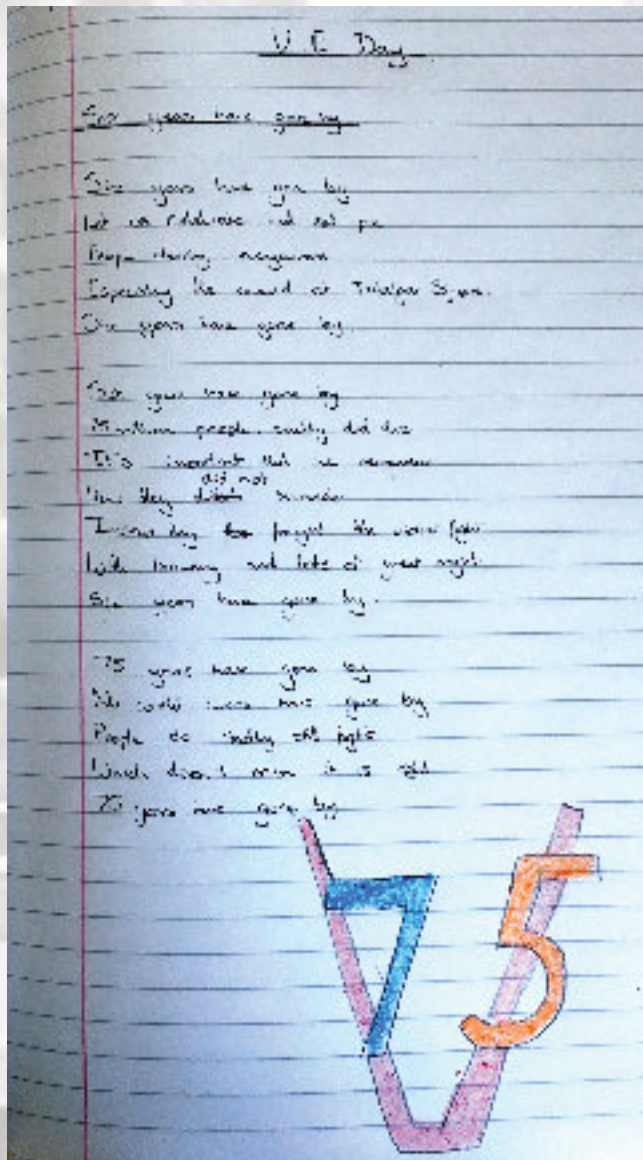 V E Day
Six years have gone by
Six years have gone by
Let us celebrate and eat pie
People cheering everywhere
Especially the crowd at Trafalgar Square.
Six years have gone by.
Six years have gone by
people sadly did die
It's important that we remember
did not
they surrender
fought the fight
With bravery and lots of great might
Six years have gone by.
75 years have gone by
No world wars have gone by
People do sadly still fight
Which doesn't mean it is right
75 years have gone by
75